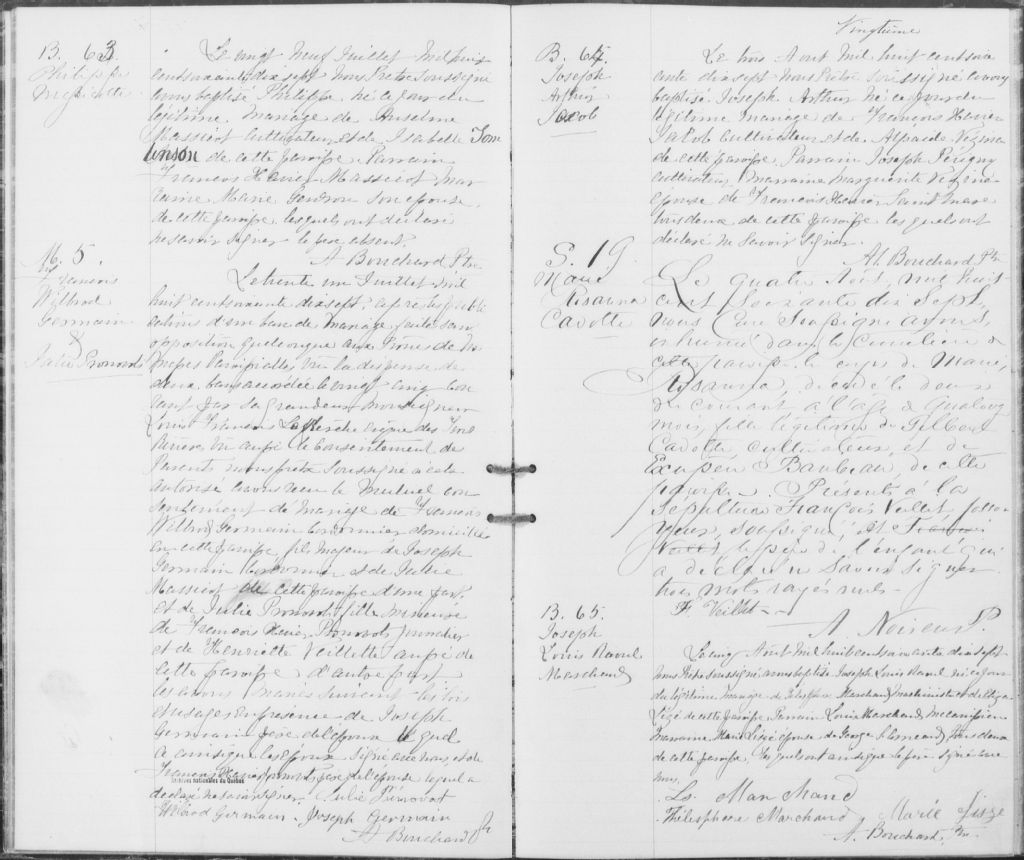 B. 63.
Philippe
Massicotte
Le vingt neuf Juillet mil huit
cent soixante dix sept nous Prêtre soussigné
avons baptisé Philippe né ce jour du
légitime mariage de Anselme
Massicot cultivateur et de Isabelle Tom
linson de cette paroisse Parrain
Francois Xavier Massicot mar
raine Marie Gendron son épouse
de cette paroisse lesquels ont déclaré
ne savoir signer le père absent.
A Bouchard Ptre
M. 5.
Francois
Wilbrod
Germain
&
Julie Pronovost
Le trente un Juillet mil
huit cent soixante dix sept, après la publi
cation d'un ban de mariage faite sans
opposition quelconque aux Prônes de nos
messes Paroissiales vu la dispense de
deux bans accordée le vingt cinq cou
rant par sa grandeur Monseigneur
Louis Francois Laflèche évêque des Trois
Rivières vu aussi le consentement de
Parents nous prêtre soussigné à cela
autorisé avons reçu le mutuel con
sentement de mariage de Francois
Wilbrod Germain Cordonnier domicilié
en cette paroisse, fils majeur de Joseph
Germain Cordonnier et de Julie
Massicot de cette paroisse d'une part
et de Julie Pronovost fille mineure
de Francois Xavier Pronovost
et de Henriette Veillette aussi de
cette paroisse d'autre part
les avons mariés suivant les lois
et usages en présence de Joseph
Germain père de l'époux lequel
a ainsi que les époux signé avec nous et de
Francois Xavier Pronovost père de l'épouse lequel a
Archives nationales du Québec
déclaré ne savoir signer. Julie Pronovot
Wilbrod Germain Joseph Germain
A Bouchard Ptr
Vingtième
B. 64.
Joseph
Arthur
Jacob
Le trois Aout mil huit cent soix
ante dix sept nous Prêtre soussigné avons
baptisé Joseph Arthur né ce jour du
légitime mariage de Francois Xavier
Jacob cultivateur et de Vezina
de cette paroisse Parrain Joseph Périgny
cultivateur marraine Marguerite Vezina
épouse de Francois Xavier Saint Mare
tous deux de cette paroisse lesquels ont
déclaré ne savoir signer.
Al. Bouchard Ptr
S. 19.
Marie
Rosanna
Cadotte
Le quatre Août, mil huit
cent soixante dix sept,
nous Curé soussigné avons,
inhumé dans le cimetière de
cette paroisse le corps de Marie,
Rosanna, décédée le deux
du courant à l'âge de quatorze
mois, fille légitime de Gilbert
Cadotte cultivateur, et de
Exupère Baribeau, de cette
paroisse. Présents à la
sépulture François Veillet, fosso
yeur, soussigné, et François
Veillet, le père de l'enfant qui
a déclaré ne savoir signer
trois mots rayés nuls.
F. Veillet
A. Noiseux P.
B. 65.
Joseph
Louis Raoul
Marchand
Le cinq Aout mil huit cent soixante dix sept
nous Prêtre soussigné avons baptisé Joseph Louis Raoul né ce jour
du légitime mariage de Télesphore Marchand machiniste et de
Lizé de cette paroisse Parrain Louis Marchand mécanicien
marraine Marie Lizé épouse de George tous deux
de cette paroisse, lesquels ont ainsi que le père signé avec
nous.
Ls Marchand
Thélesphore Marchand, Marie Lisze
A. Bouchard, Ptre